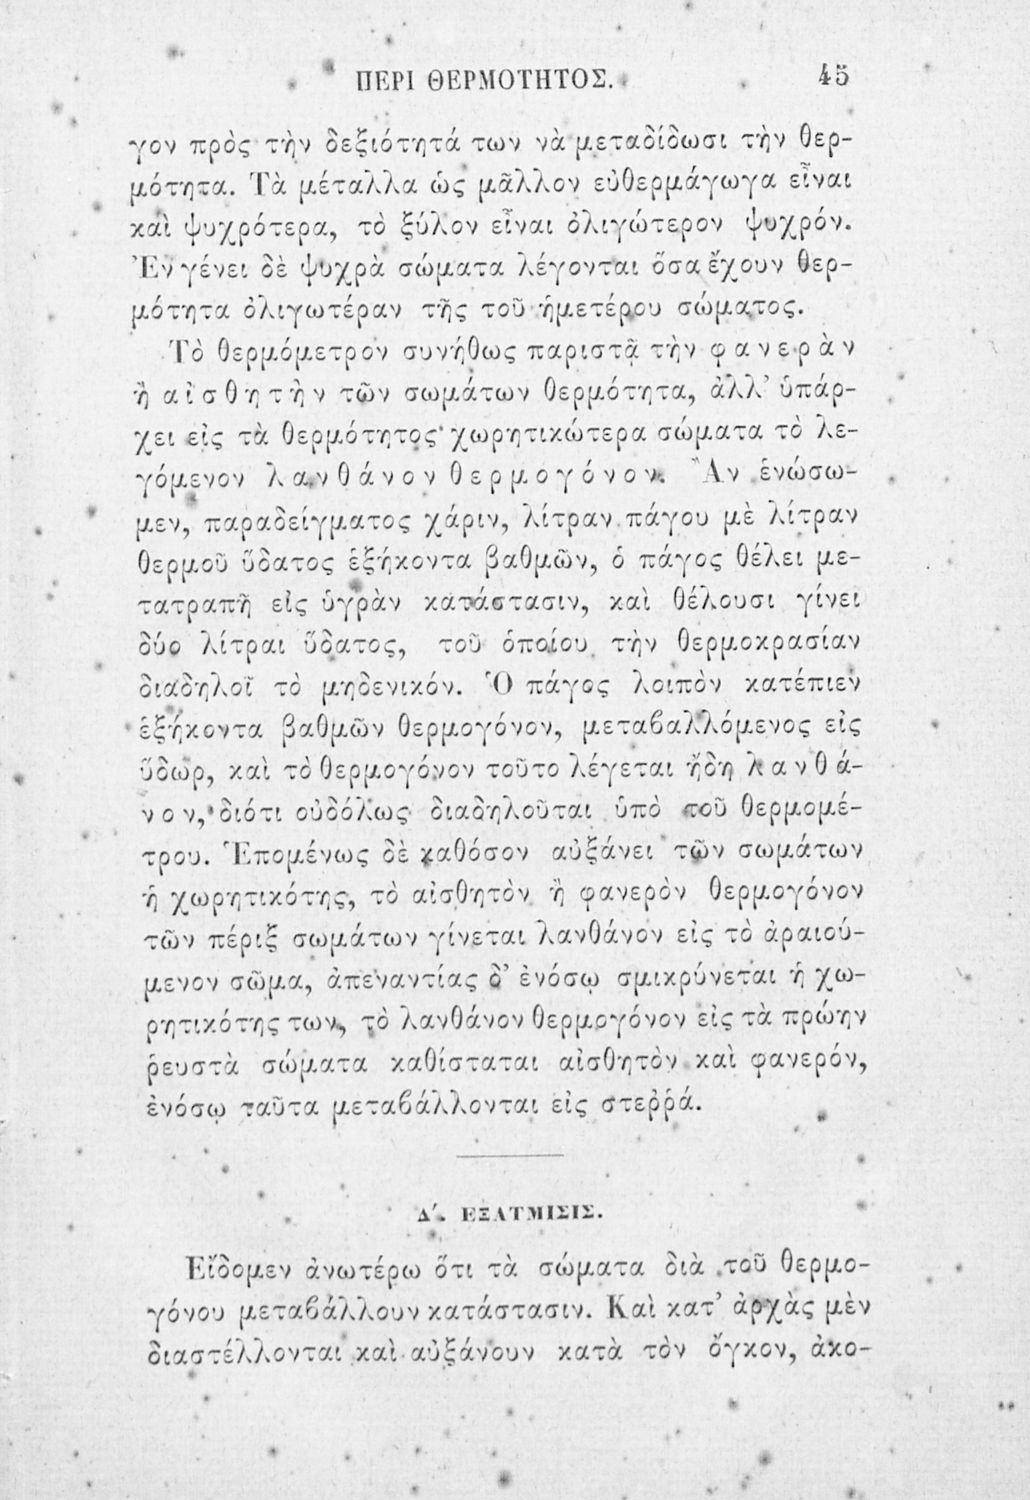 ΠΕΡΙ ΘΕΡΜΟΤΗΤΟΣ. 45
γον πρὸς τὴν δεξιότητά των νὰ μεταδίδωσι τὴν θερ-
μότητα. Τὰ μέταλλα ὡς μᾶλλον εὐθερμάγωγα εἶναι
καὶ ψυχρότερα, τὸ ξύλον εἶναι ὀλιγώτερον ψυχρόν.
Ἐν γένει δὲ ψυχρὰ σώματα λέγονται ὅσα ἔχουν θερ-
μότητα ὀλιγωτέραν τῆς τοῦ ἡμετέρου σώματος.
Τὸ θερμόμετρον συνήθως παριστᾷ τὴν φανερὰν
ἢ αἰσθητὴν τῶν σωμάτων θερμότητα, ἀλλ’ ὑπάρ-
χει εἰς τὰ θερμότητος χωρητικώτερα σώματα τὸ λε-
γόμενον λανθάνον θερμογόνον. Ἂν ἑνώσω-
μεν, παραδείγματος χάριν, λίτραν πάγου μὲ λίτραν
θερμοῦ ὕδατος ἑξήκοντα βαθμῶν, ὁ πάγος θέλει με-
τατραπῆ εἰς ὑγρὰν κατάστασιν, καὶ θέλουσι γίνει
δύο λίτραι ὕδατος, τοῦ ὁποίου τὴν θερμοκρασίαν
διαδηλοῖ τὸ μηδενικόν. Ὁ πάγος λοιπὸν κατέπιεν
ἑξήκοντα βαθμῶν θερμογόνον, μεταβαλλόμενος εἰς
ὕδωρ, καὶ τὸ θερμογόνον τοῦτο λέγεται ἤδη λανθά-
νον, διότι οὐδόλως διαδηλοῦται ὑπὸ τοῦ θερμομέ-
τρου. Ἑπομένως δὲ καθόσον αὐξάνει τῶν σωμάτων
ἡ χωρητικότης, τὸ αἰσθητὸν ἢ φανερὸν θερμογόνον
τῶν πέριξ σωμάτων γίνεται λανθάνον εἰς τὸ ἀραιού-
μενον σῶμα, ἀπεναντίας δ’ ἐνόσῳ σμικρύνεται ἡ χω-
ρητικότης των, τὸ λανθάνον θερμογόνον εἰς τὰ πρώην
ῥευστὰ σώματα καθίσταται αἰσθητὸν καὶ φανερόν,
ἐνόσῳ ταῦτα μεταβάλλονται εἰς στεῤῥά.
Δ΄. ΕΞΑΤΜΙΣΙΣ.
Εἴδομεν ἀνωτέρω ὅτι τὰ σώματα διὰ τοῦ θερμο-
γόνου μεταβάλλουν κατάστασιν. Καὶ κατ’ ἀρχὰς μὲν
διαστέλλονται καὶ αὐξάνουν κατὰ τὸν ὄγκον, ἀκο-